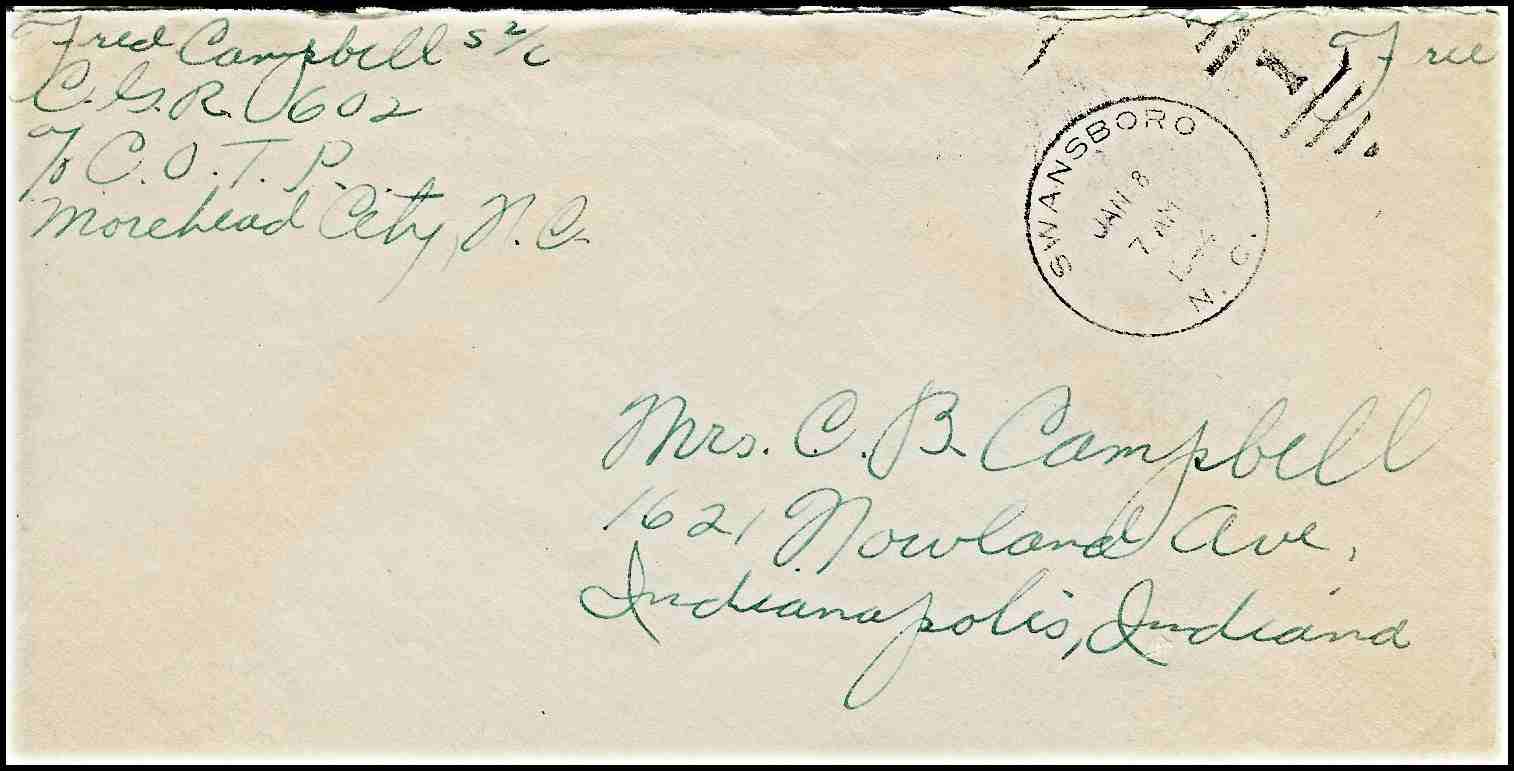 Fred Campbell S 2/c
C.G.R. 602
℅ C.O.T.P.
Morehead City, N.C.
Free
SWANSBORO
JAN 8
7 AM
N. C.
Mrs. C. B. Campbell
1621 Nowland Ave.
Indianapolis, Indiana